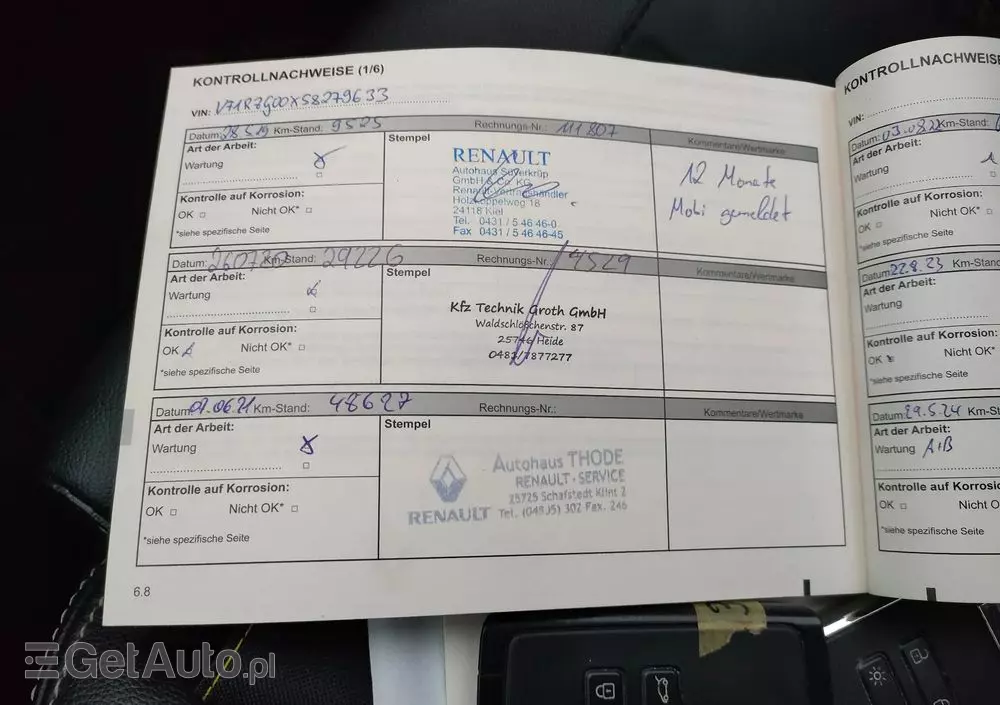 KONTROLLNACHWEISE (1/6)
VIN:
Datum: 28.5.19 Km-Stand: 9525 Rechnungs-Nr.: 111807
Kommentare/Wertmarke
Art der Arbeit:
Wartung
Kontrolle auf Korrosion:
OK Nicht OK*
*siehe spezifische Seite
Stempel
RENAULT
Autohaus Süverkrüp
GmbH & Co. KG
Renault-Vertragshändler
Holzkoppelweg 18
24118 Kiel
Tel. 0431 / 5 46 46-0
Fax 0431 / 5 46 46-45
12 Monate
Mobi gemeldet
Datum: Km-Stand: 29226 Rechnungs-Nr.: 14529
Kommentare/Wertmarke
Art der Arbeit:
Wartung
Kontrolle auf Korrosion:
OK Nicht OK*
*siehe spezifische Seite
Stempel
Kfz Technik Groth GmbH
Waldschlößchenstr. 87
25746 Heide
0481/7877277
Datum: 07.06.21 Km-Stand: 48627 Rechnungs-Nr.:
Kommentare/Wertmarke
Art der Arbeit:
Wartung
Kontrolle auf Korrosion:
OK Nicht OK*
*siehe spezifische Seite
Stempel
RENAULT
Autohaus THODE
RENAULT - SERVICE
25725 Schafstedt Klint 2
Tel. (04805) 302 Fax. 246
6.8
KONTROLLNACHWEISE
VIN:
Datum: 03.08.22 Km-Stand:
Art der Arbeit:
Wartung
Kontrolle auf Korrosion:
OK Nicht OK*
*siehe spezifische Seite
Datum: 22.8.23 Km-Stand
Art der Arbeit:
Wartung
Kontrolle auf Korrosion:
OK Nicht OK*
*siehe spezifische Seite
Datum: 29.5.24 Km-S
Art der Arbeit:
Wartung A+B
Kontrolle auf Korrosio
OK Nicht O
*siehe spezifische Seite
GetAuto.pl